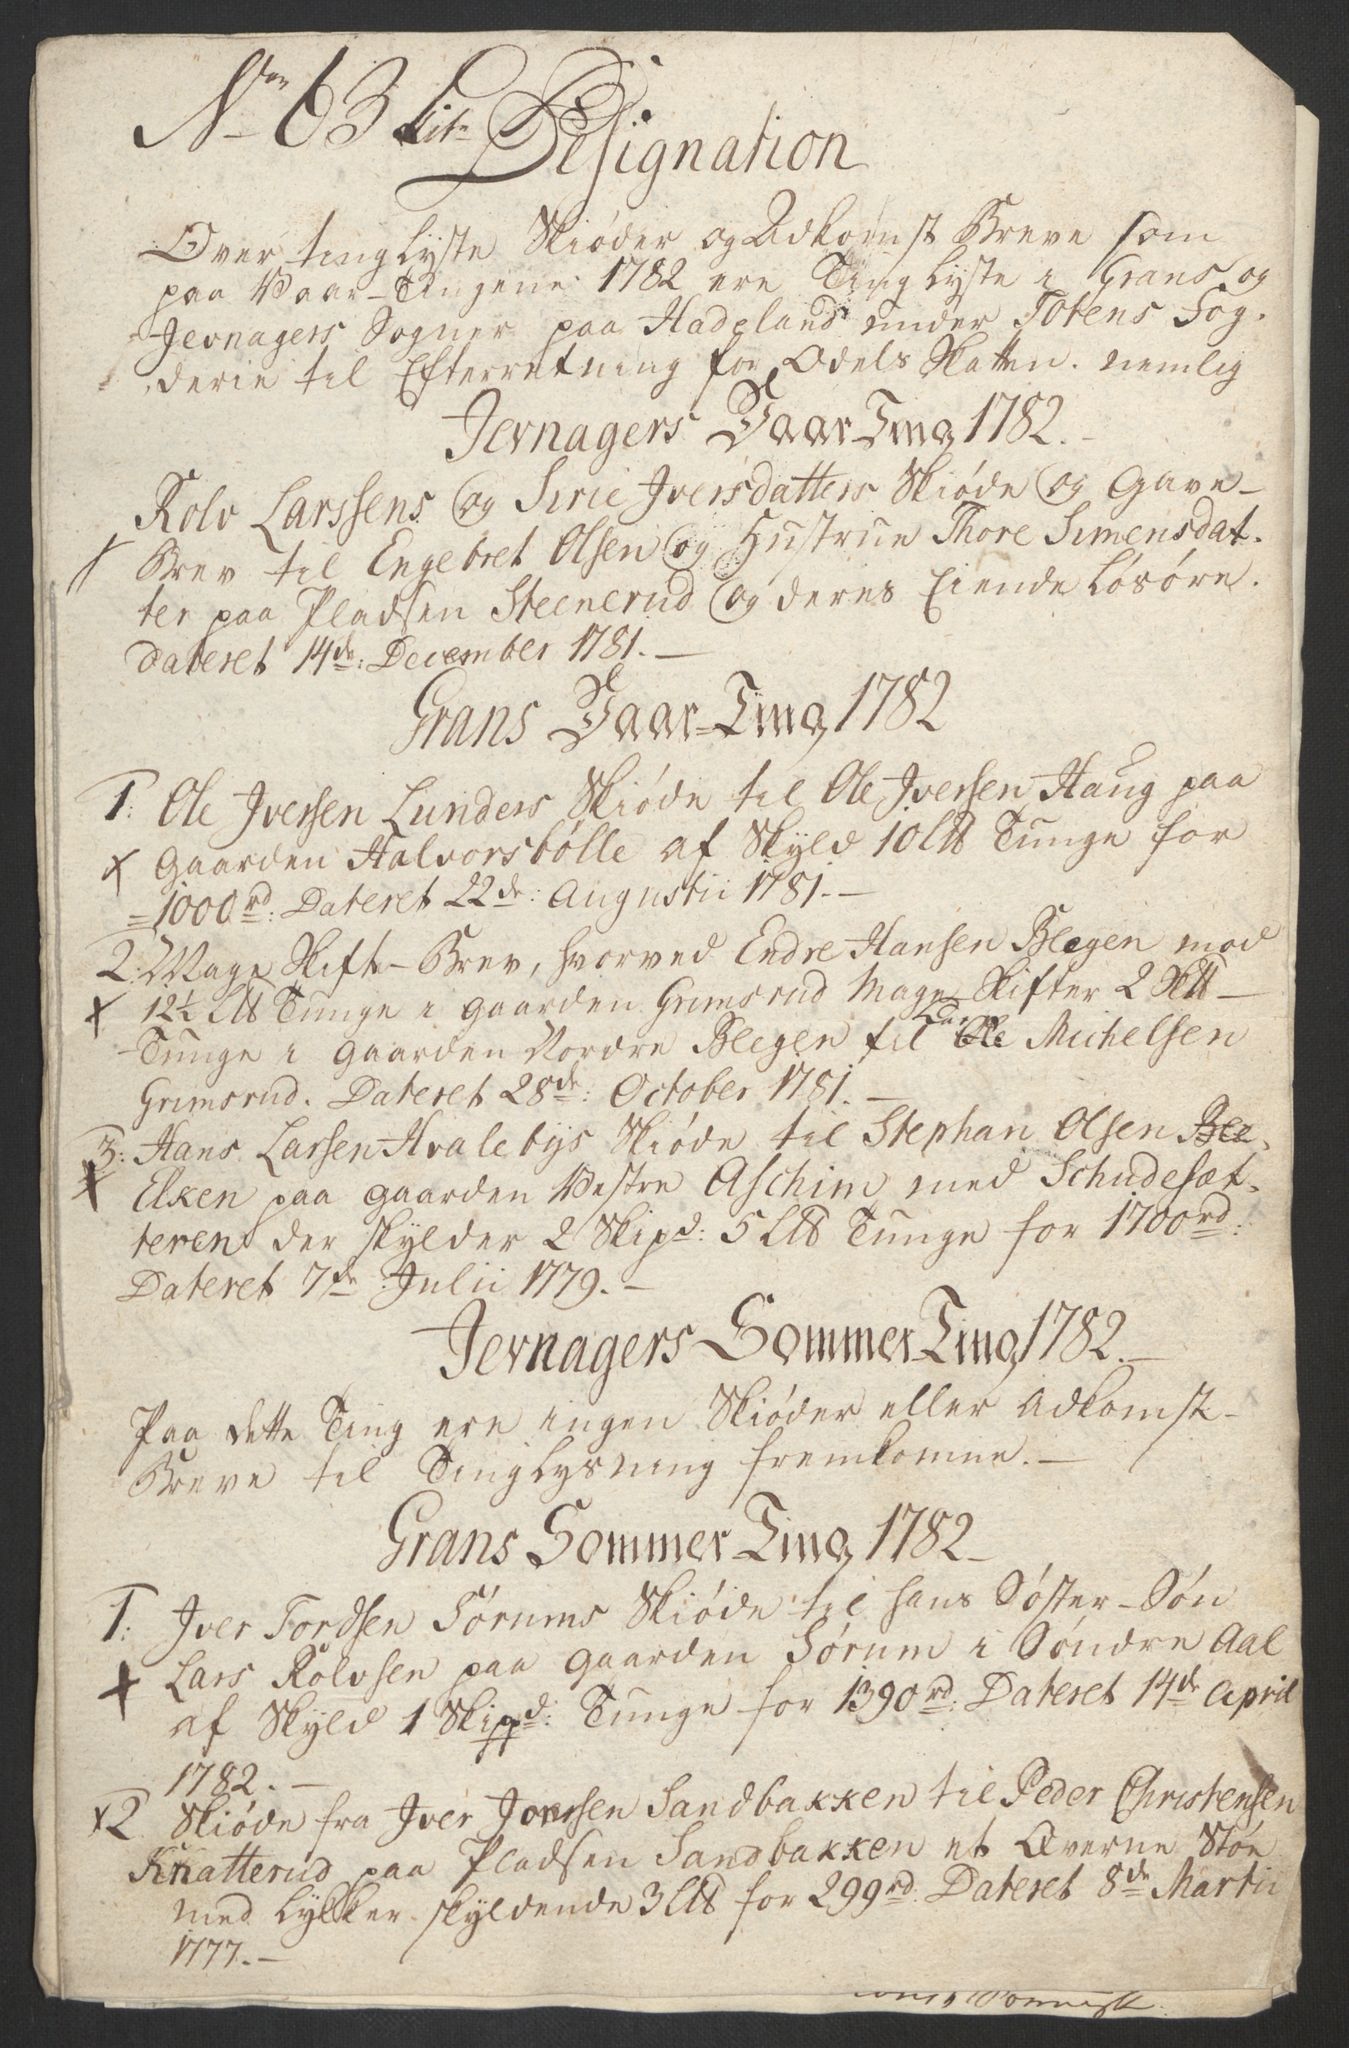 No 63 Lit.
Designation
Over tinglyste Skiøder og Adkomst Breve som
paa Vaar-Tingene 1782 ere Tinglyste i Grans og
Jevnagers Sogner paa Hadeland under Totens Fog-
derie til Efterretning for Odels Skatten. nemlig
Jevnagers Vaar Ting 1782.-
Rolv Larssens og Sirie Iversdatters Skiøde og Gave-
Brev til Engebret Olsen og Hustrue Thore Simensdat-
ter paa Pladsen Steenerud og deres Eiende Løsøre.
dateret 14de: December 1781.-
Grans Vaar-Ting 1782
1: Ole Iversen Lunders Skiøde til Ole Iversen Haug paa
x Gaarden Halvorsbølle af Skyld 10 L℔ Tunge for
=1000rd: Dateret 22de: Augustii 1781.-
2: Mage Skifte-Brev, hvorved Endre Hansen Bleegen mod
x 12½ L℔ Tunge i gaarden Grimsrud Mage Skifter 2 S℔-
Tunge i Gaarden Nordre Bleegen til Lars Michelsen
Grimsrud. Dateret 28de: October 1781.-
3: Hans Larsen Hvalebys Skiøde til Stephan Olsen Blee-
x Elken paa gaarden Vestre Aschim med Schudesæt-
teren der skylder 2 Skipd: 5 L℔ Tunge for 1700rd:
Dateret 7de Julii 1779.-
Jevnagers Sommer Ting 1782.-
Paa dette Ting ere ingen Skiøder eller Adkomst-
Breve til Tinglysning fremkomne.-
Grans Sommer Ting 1782-
1: Iver Tordsen Sørums Skiøde til hans Søster-Søn
x Lars Rolvsen paa gaarden Sørum i Søndre Aal
af Skyld 1 Skippd: Tunge for 1390rd: Dateret 14de April
1782.-
x2 Skiøde fra Iver Jonssen Sandbakken til Peder Christensen
Knatterud paa Pladsen Sandbakken et Øverne Støe
med Lykker skyldende 3 L℔ for 299rd. Dateret 8de Martii
1777.-